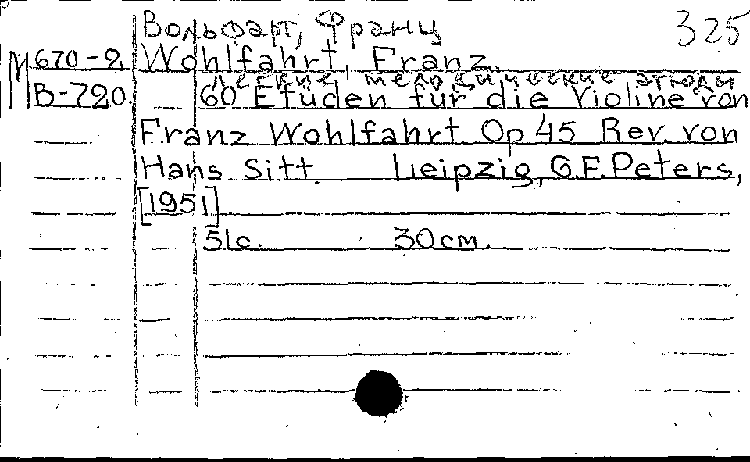 Вольфарт, Франц 325
М 670-2 Wohlfahrt, Franz.
легкие мелодические этюды
В-720 60 Etüden für die Violine von
Franz Wohlfahrt Op 45 Rev. von
Hans Sitt Leipzig, C.F. Peters,
[1951]
51с. 30cm.